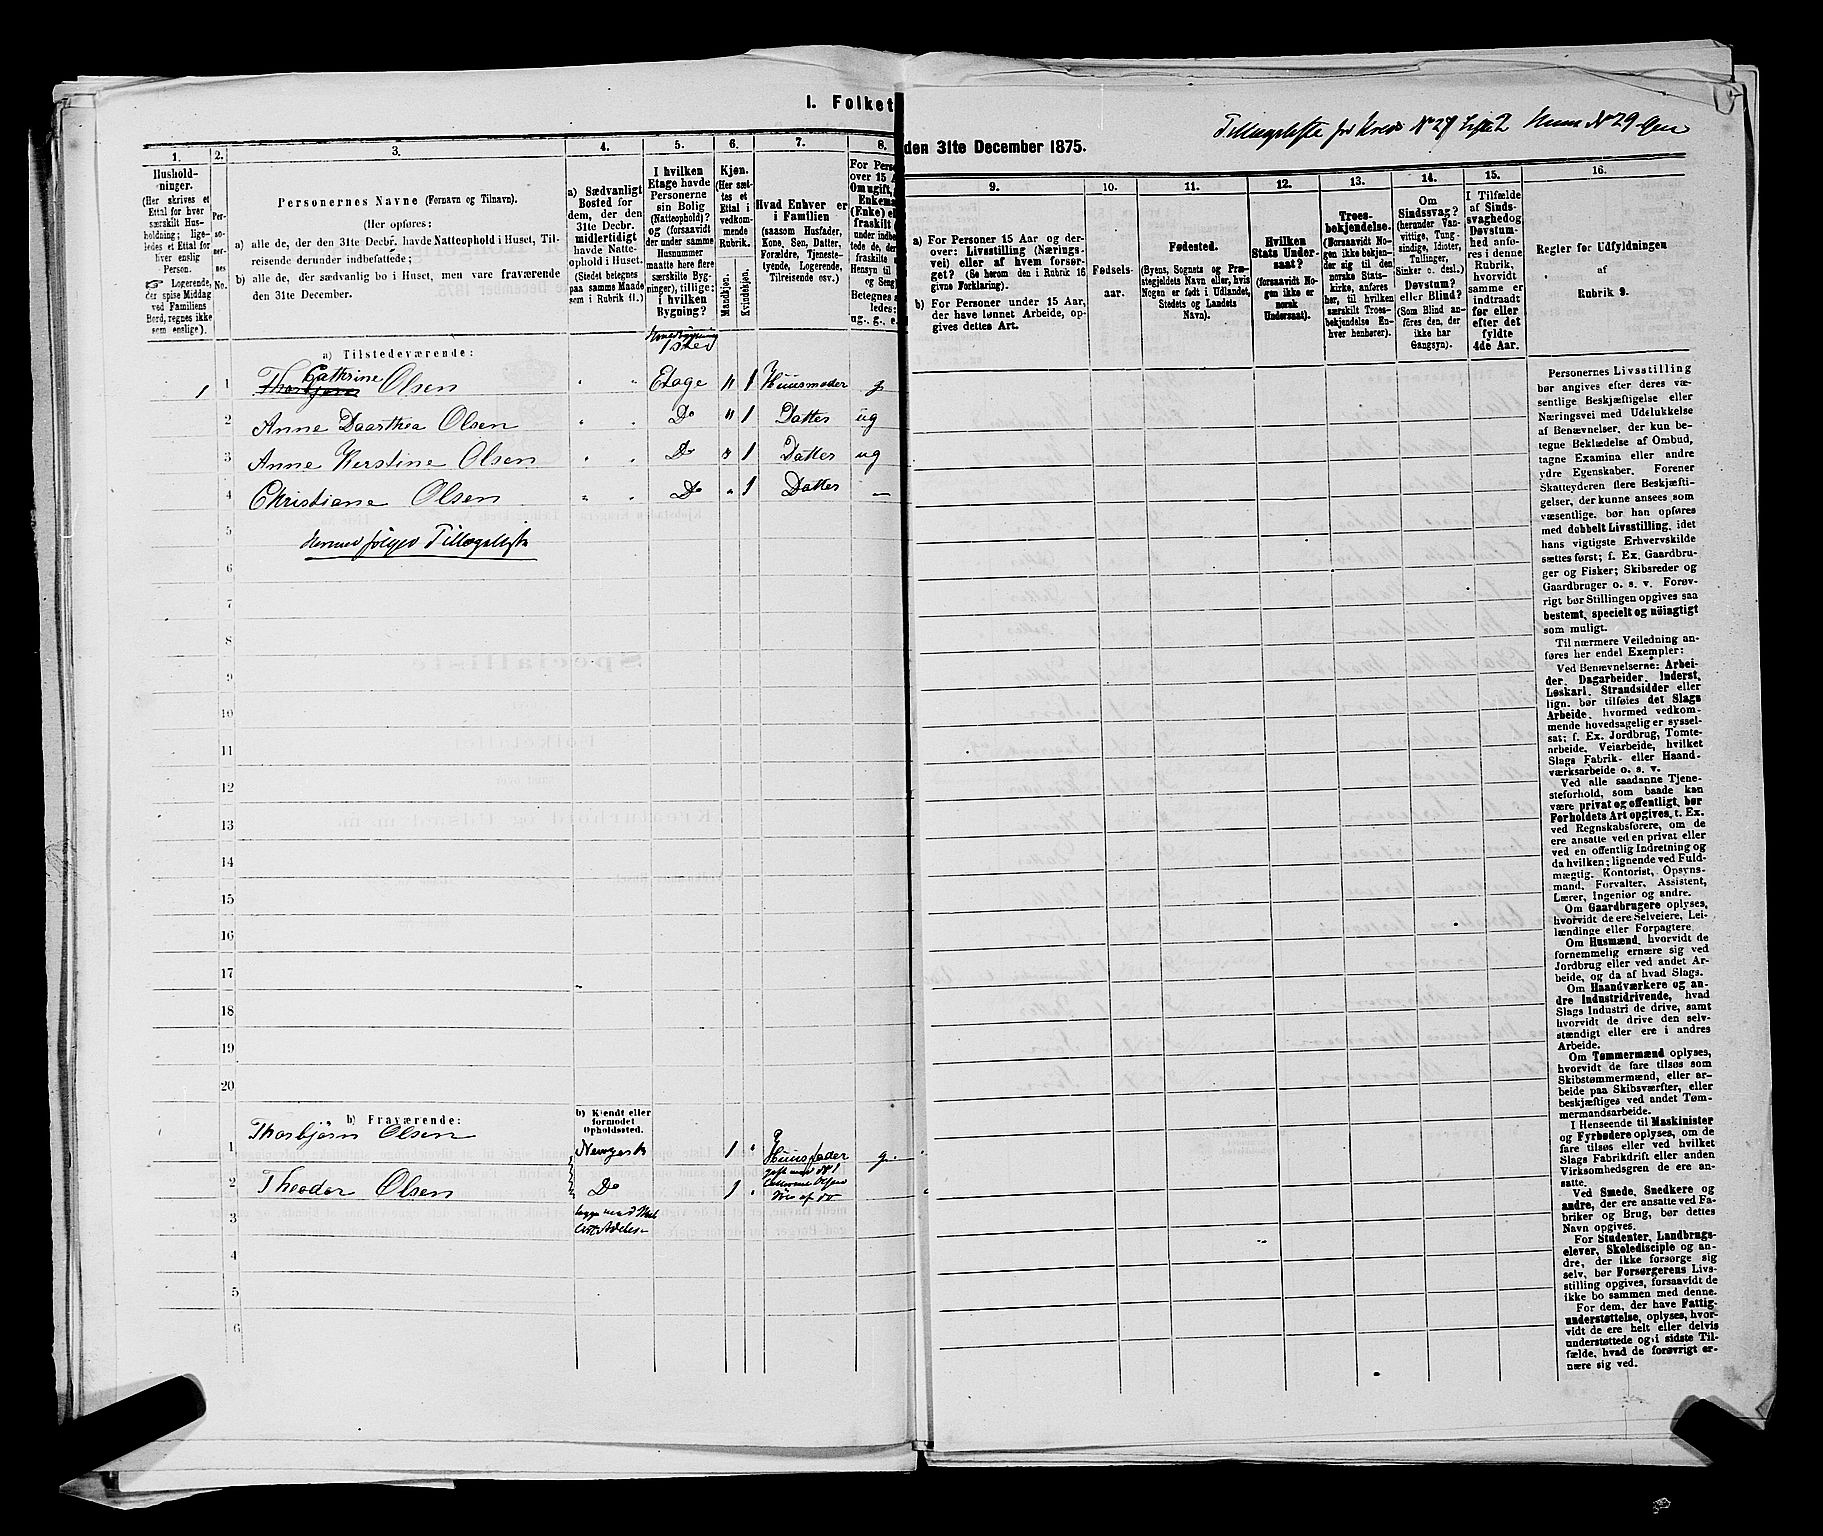 I. Folket
den 31te December 1875.
Tillægsliste for Kreds No 27 Liste 2 Huus No 29
1.
Hushold-
ninger.
(Her skrives et
Ettal for hver
særskilt Hus-
holdning; lige-
ledes et Ettal for
hver enslig
Person.
☞ Logerende,
der spise Middag
ved Familiens
Bord, regnes ikke
som enslige).
2.
Per-
so-
ner-
nes
No.
3.
Personernes Navne (Fornavn og Tilnavn).
(Her opføres:
a) alle de, der den 31te Decbr. havde Natteophold i Huset, Til-
reisende derunder indbefattede;
b) alle de, der sædvanlig bo i Huset, men vare fraværende
den 31te December.
4.
a) Sædvanligt
Bosted for
dem, der den
31te Decbr.
midlertidigt
havde Natte-
ophold i Huset.
(Stedet betegnes
paa samme Maade
som i Rubrik 11.)
5.
I hvilken
Etage havde
Personerne
sin Bolig
(Natteophold)?
og (forsaavidt
der under samme
Husnummer
maatte here flere
særskilte Byg-
ninger), tillige:
i hvilken
Bygning?
6.
Kjøn.
(Her sæt-
tes et
Ettal i
vedkom-
mende
Rubrik.
Mandkjøn.
Kvindekjøn.
7.
Hvad Enhver er
i Familien
(saasom Husfader,
Kone, Søn, Datter,
Forældre, Tjeneste-
tyende, Logerende,
Tilreisende osv.)
8.
For Perso
over 15 A
Om ugift,
Enkema
(Enke) el
fraskilt
under indbe
tede de, der
fraskilte
Hensyn til
og Seng
Betegnes s
ledes:
ug., g., e.
9.
a) For Personer 15 Aar og der-
over: Livsstilling (Nærings-
vei) eller af hvem forsør-
get? (Se herom den i Rubrik 16
givne Forklaring).
b) For Personer under 15 Aar,
der have lønnet Arbeide, op-
gives dettes Art.
10.
Fødsels-
aar.
11.
Fødested.
(Byens, Sognets og Præ-
stegjeldets Navn eller, hvis
Nogen er født i Udlandet,
Stedets og Landets
Navn).
12.
Hvilken
Stats Under-
saat?
(forsaavidt No-
gen ikke er
norsk
Undersaat).
13.
Troes-
bekjendelse.
(Forsaavidt No-
gen ikke bekjen-
der sig til den
norske Stats-
kirke, anføres
her, til hvilken
særskilt Troes-
bekjendelse En-
hver henhører).
14.
Om
Sindssvag?
(herunder Van-
vittige, Tung-
sindige, Idioter,
Tullinger,
Sinker o. desl.)
Døvstum?
eller Blind?
(Som Blind an-
føres den, der
ikke har
Gangsyn).
15.
I Tilfælde
af Sinds-
svaghed og
Døvstum-
hed anfø-
res i denne
Rubrik,
hvorvidt
samme er
indtraadt
før eller
efter det
fyldte
4de Aar.
16.
Regler for Udfyldningen
af
Rubrik 9.
a) Tilstedeværende:
1 1 Thorbjørn Cathrine Olsen " " Etage " 1 Huusmoder g
2 Anne Daarthea Olsen " " Do " 1 Datter ug
3 Anne Kerstine Olsen " " Do " 1 Datter ug
4 Christiane Olsen " " Do " 1 Datter —
5 Hermed følger Tillægsliste
6
7
8
9
10
11
12
13
14
15
16
17
18
19
20
b) Fraværende:
b) Kjendt eller
formodet
Opholdssted.
1 Thorbjørn Olsen 1 " Huusfader g
2 Theodor Olsen Do 1 "
3
4
5
6
Personernes Livsstilling
bør angives efter deres væ-
sentlige Beskjæftigelse eller
Næringsvei med Udelukkelse
af Benævnelser, der kun be-
tegne Beklædelse af Ombud,
tagne Examina eller andre
ydre Egenskaber. Forener
Skatteyderen flere Beskjæfti-
gelser, der kunne ansees som
væsentlige, bør han opføres
med dobbelt Livsstilling, idet
hans vigtigste Erhvervskilde
sættes først; f. Ex. Gaardbru-
ger og Fisker; Skibsreder og
Gaardbruger o. s. v. Forøv-
rigt bør Stillingen opgives saa
bestemt, specielt og nöiagtigt
som muligt.
Til nærmere Veiledning an-
føres her endel Exempler:
Ved Benævnelserne: Arbei-
der, Dagarbeider, Inderst,
Løskarl, Strandsidder eller
lign. bør tilføies det Slags
Arbeide, hvormed vedkom-
mende hovedsagelig er syssel-
sat; f. Ex. Jordbrug, Tomte-
arbeide, Veiarbeide, hvilket
Slags Fabrik- eller Haand-
værksarbeide o. s. v.
Ved alle saadanne Tjene-
steforhold, som baade kan
være privat og offentligt, bør
Forholdets Art opgives, t. Ex.
ved Regnskabsførere, om de
ere ansatte ved en privat eller
ved en offentlig Indretning og
da hvilken; lignende ved Fuld-
mægtig, Kontorist, Opsyns-
mand, Forvalter, Assistent,
Lærer, Ingeniør og andre.
Om Gaardbrugere oplyses,
hvorvidt de ere Selveiere, Lei-
lændinge eller Forpagtere.
Om Husmænd, hvorvidt de
fornemmelig ernære sig ved
Jordbrug eller ved andet Ar-
beide, og da af hvad Slags.
Om Haandværkere og an-
dre Industridrivende, hvad
Slags Industri de drive, samt
hvorvidt de drive den selv-
stændigt eller ere i andres
Arbeide.
Om Tømmermænd oplyses,
hvorvidt de fare tilsøs som
Skibstømmermænd, eller ar-
beide paa Skibsværfter, eller
beskjæftiges ved andet Tøm-
mermandsarbeide.
I Henseende til Maskinister
og Fyrbødere oplyses, om de
fare tilsøs eller ved hvilket
Slags Fabrikdrift eller anden
Virksomhedsgren de ere an-
satte.
Ved Smede, Snedkere og
andre, der ere ansatte ved Fa-
briker og Brug, bør dettes
Navn opgives.
For Studenter, Landbrugs-
elever, Skoledisciple og an-
dre, der ikke forsørge sig
selv, bør Forsørgerens Livs-
stilling opgives, forsaavidt de
ikke bo sammen med denne.
For dem, der have Fattig-
understøttelse, oplyses, hvor-
vidt de ere helt eller delvis
understøttede og i sidste Til-
fælde, hvad de forøvrigt er-
nære sig ved.